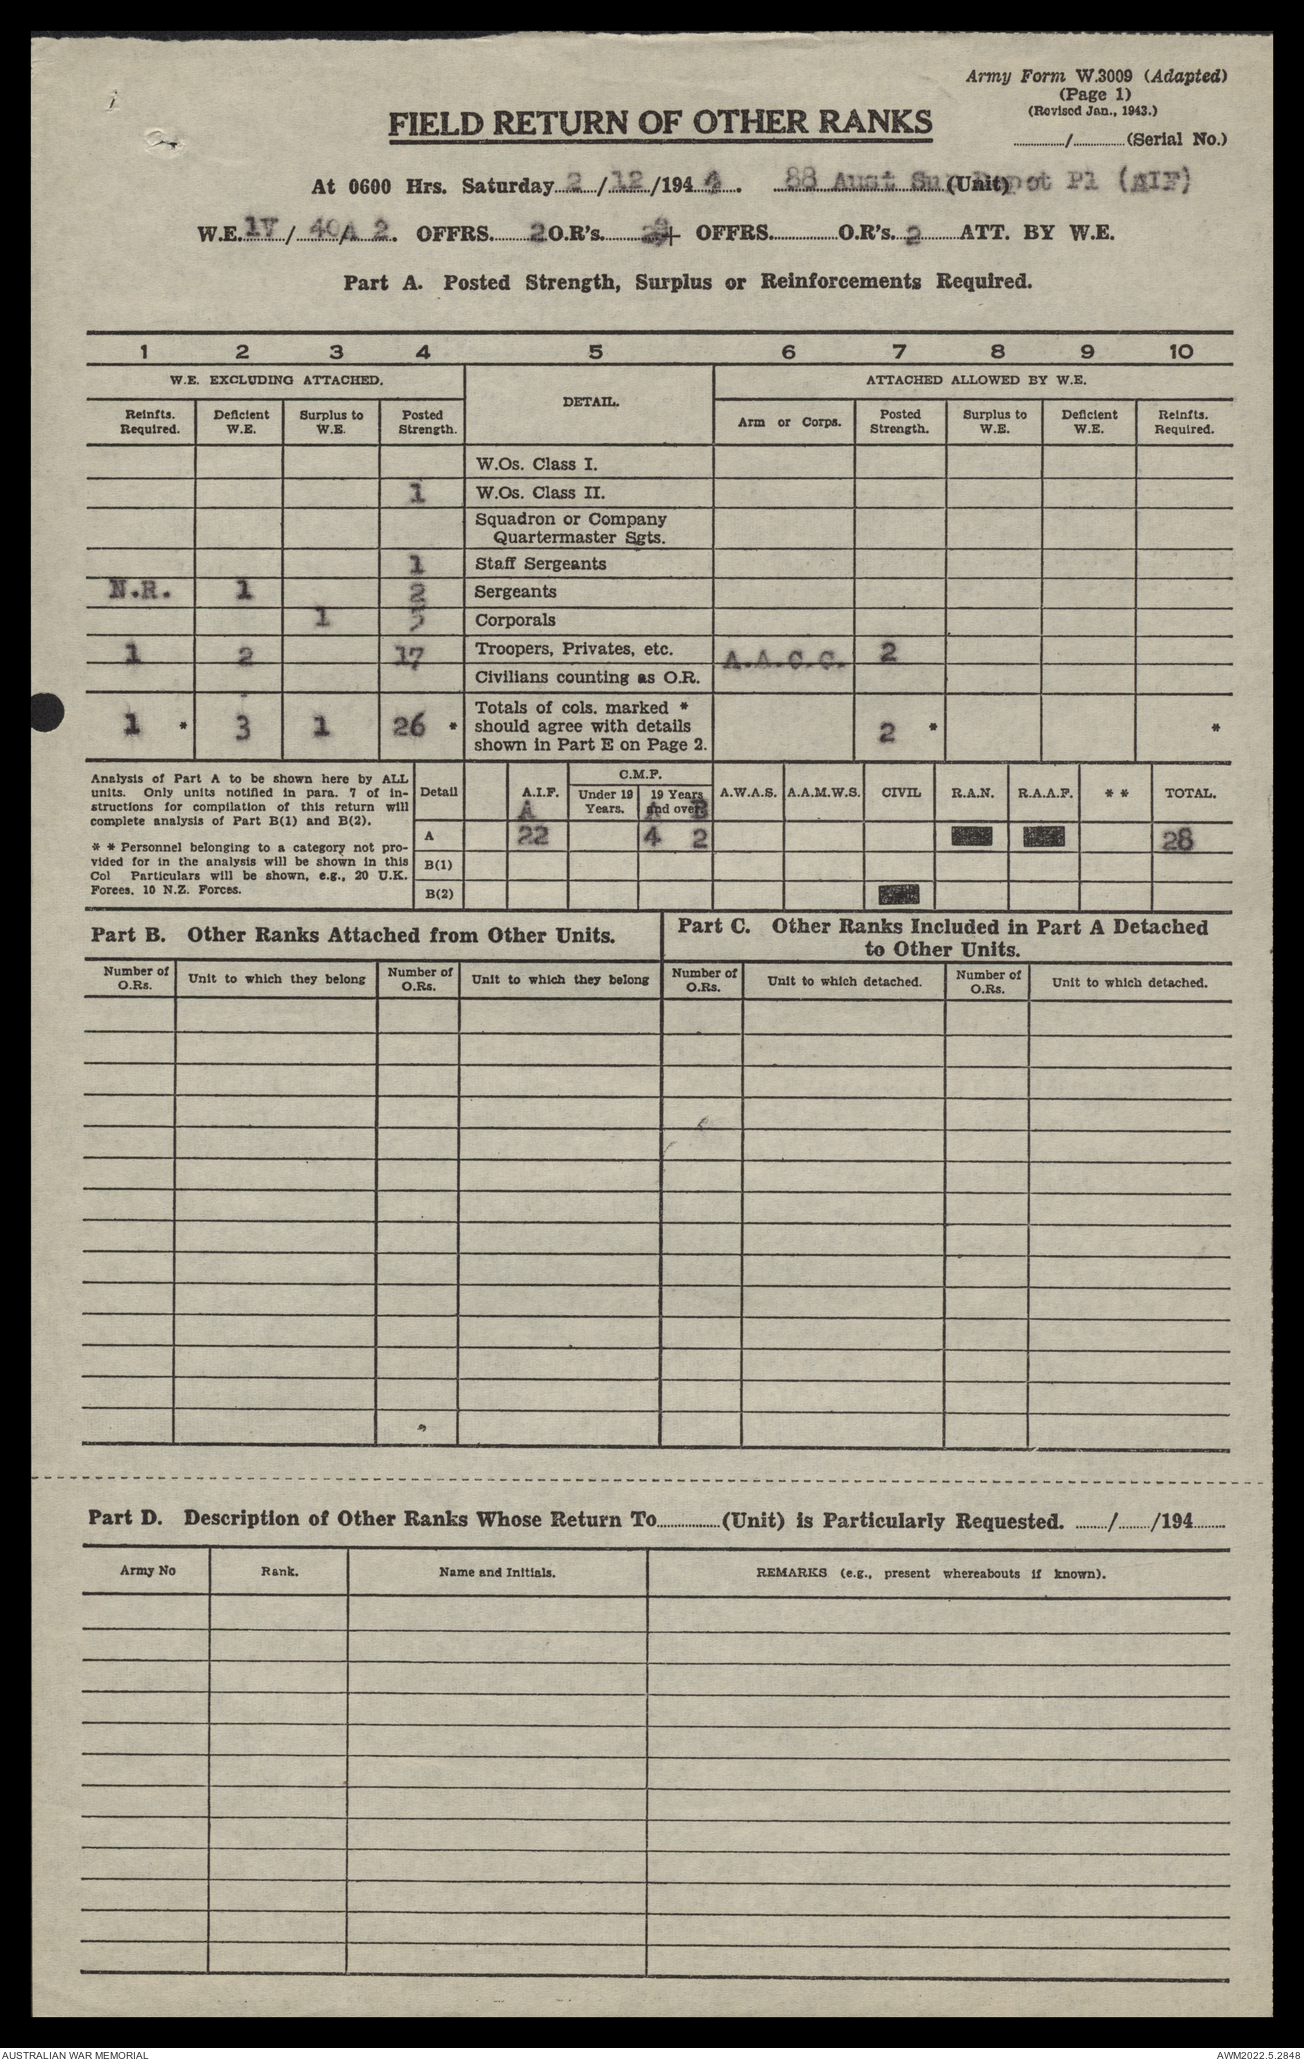 Army Form W.3009 (Adapted)
(Page 1)
(Revised Jan., 1943.)
FIELD RETURN OF OTHER RANKS
............/............(Serial No.)
At 0600 Hrs. Saturday 2/12/1944. 88 Aust Sup Depot Pl (AIF) (Unit)
W.E. 1V/40A 2. OFFRS. 2 O.R's. OFFRS. O.R's. 2 ATT. BY W.E.
Part A. Posted Strength, Surplus or Reinforcements Required.
1 2 3 4 5 6 7 8 9 10
W.E. EXCLUDING ATTACHED. DETAIL. ATTACHED ALLOWED BY W.E.
Reinfts. Required. Deficient W.E. Surplus to W.E. Posted Strength. Arm or Corps. Posted Strength. Surplus to W.E. Deficient W.E. Reinfts. Required.
W.Os. Class I.
1 W.Os. Class II.
Squadron or Company
Quartermaster Sgts.
1 Staff Sergeants
N.R. 1 2 Sergeants
1 5 Corporals
1 2 17 Troopers, Privates, etc. A.A.C.C. 2
Civilians counting as O.R.
1 * 3 1 26 * Totals of cols. marked * should agree with details shown in Part E on Page 2. 2 * *
Analysis of Part A to be shown here by ALL
units. Only units notified in para. 7 of in-
structions for compilation of this return will
complete analysis of Part B(1) and B(2).
* * Personnel belonging to a category not pro-
vided for in the analysis will be shown in this
Col Particulars will be shown, e.g., 20 U.K.
Forces, 10 N.Z. Forces.
Detail A.I.F. C.M.F. Under 19 Years. 19 Years and over. A.W.A.S. A.A.M.W.S. CIVIL R.A.N. R.A.A.F. * * TOTAL.
A A B
A 22 4 2 28
B(1)
B(2)
Part B. Other Ranks Attached from Other Units.
Number of O.Rs. Unit to which they belong Number of O.Rs. Unit to which they belong
Part C. Other Ranks Included in Part A Detached
to Other Units.
Number of O.Rs. Unit to which detached. Number of O.Rs. Unit to which detached.
Part D. Description of Other Ranks Whose Return To............(Unit) is Particularly Requested. ......./......./194.......
Army No Rank. Name and Initials. REMARKS (e.g., present whereabouts if known).
AUSTRALIAN WAR MEMORIAL AWM2022.5.2848